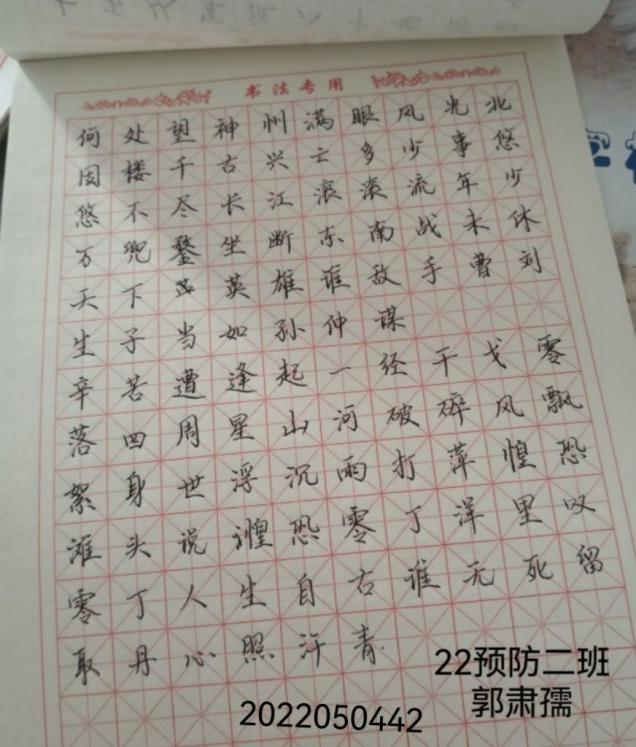 书法专用
何处望神州满眼风光北
固楼千古兴亡多少事悠
悠不尽长江滚滚流年少
万兜鍪坐断东南战未休
天下英雄谁敌手曹刘
生子当如孙仲谋
辛苦遭逢起一经干戈零
落四周星山河破碎风飘
絮身世浮沉雨打萍惶恐
滩头说惶恐零丁洋里叹
零丁人生自古谁无死留
取丹心照汗青
22预防二班
郭肃孺
2022050442